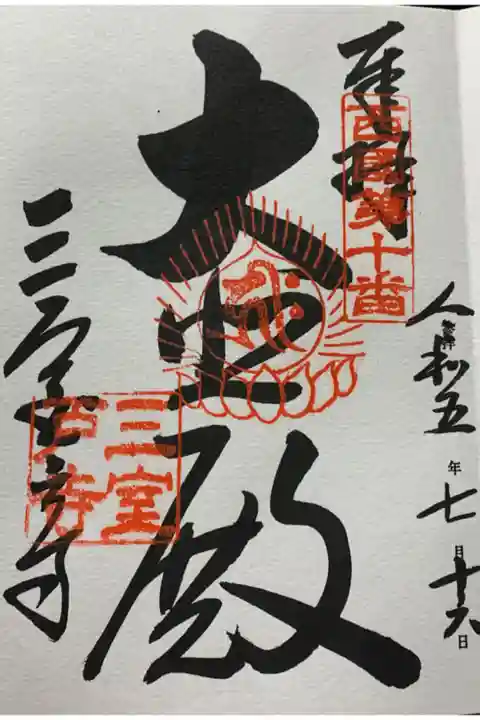 奉拝
西國第十番
令和五年七月十六日
大悲殿
三室戸寺
三室戸寺